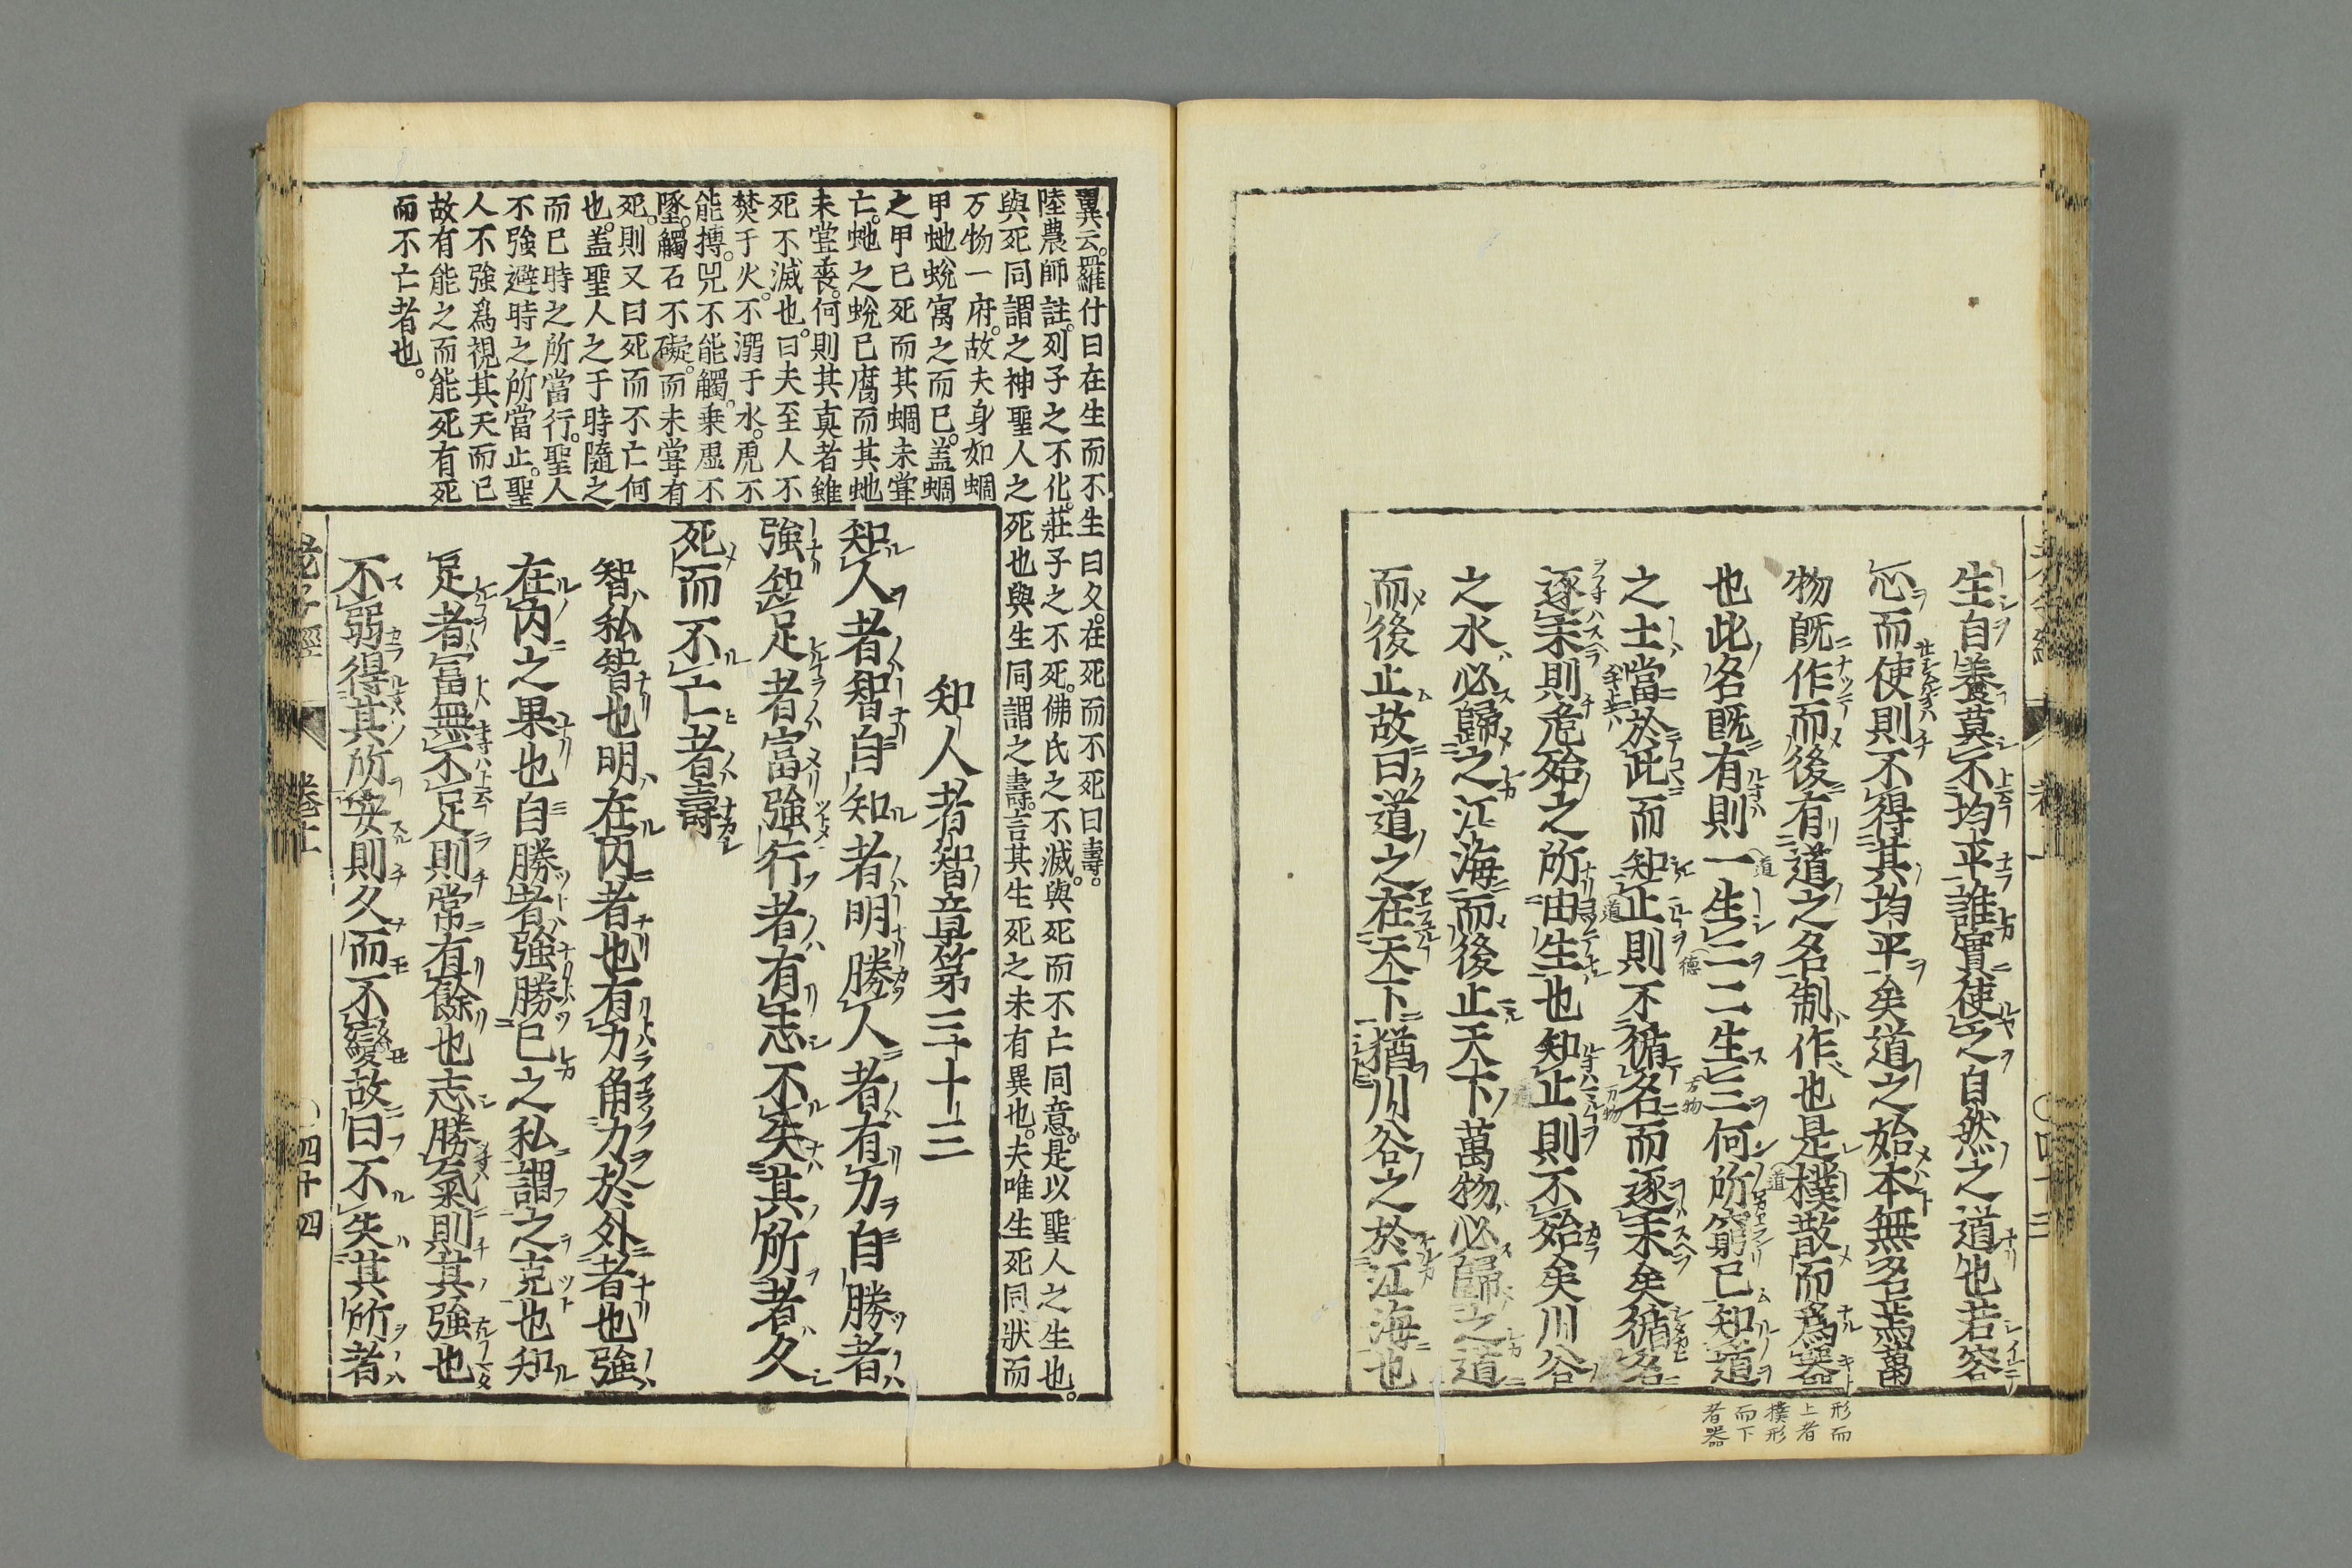 生自養莫不均平誰實使之自然之道也若容
心而使則不得其均平矣道之始本無名焉萬
物既作而後有道之名制作也是樸散而爲器
也此名既有則一生二二生三何所窮已知道
之士當於此而知止則不循名而逐末矣循名
逐末則危殆之所由生也知止則不殆矣川谷
之水必歸之江海而後止天下萬物必歸之道
而後止故曰道之在天下猶川谷之於江海也
形而
上者
樸形
而下
者器
翼云羅什曰在生而不生曰久在死而不死曰壽。
陸農師註列子之不化莊子之不死佛氏之不滅與死而不亡同意是以聖人之生也。
與死同謂之神聖人之死也與生同謂之壽言其生死之未有異也夫唯生死同狀而
万物一府故夫身如蜩
甲虵蛻寓之而已蓋蜩
之甲已死而其蜩未甞
亡虵之蛻已腐而其虵
未甞喪何則其真者雖
死不滅也曰夫至人不
焚于火不溺于水虎不
能搏兕不能觸乗虛不
墜觸石不礙而未甞有
死則又曰死而不亡何
也蓋聖人之于時隨之
而已時之所當行聖人
不強避時之所當止聖
人不強爲視其天而已
故有能之而能死有死
而不亡者也。
知人者智章第三十三
知人者智自知者明勝人者有力自勝者
強知足者富強行者有志不失其所者久
死而不亡者壽
智私智也明在内者也有力角力於外者也強
在内之果也自勝者強勝已之私謂之克也知
足者富無不足則常有餘也志勝氣則其強也
不弱得其所安則久而不變故曰不失其所者
老子經 卷上 〇四十四